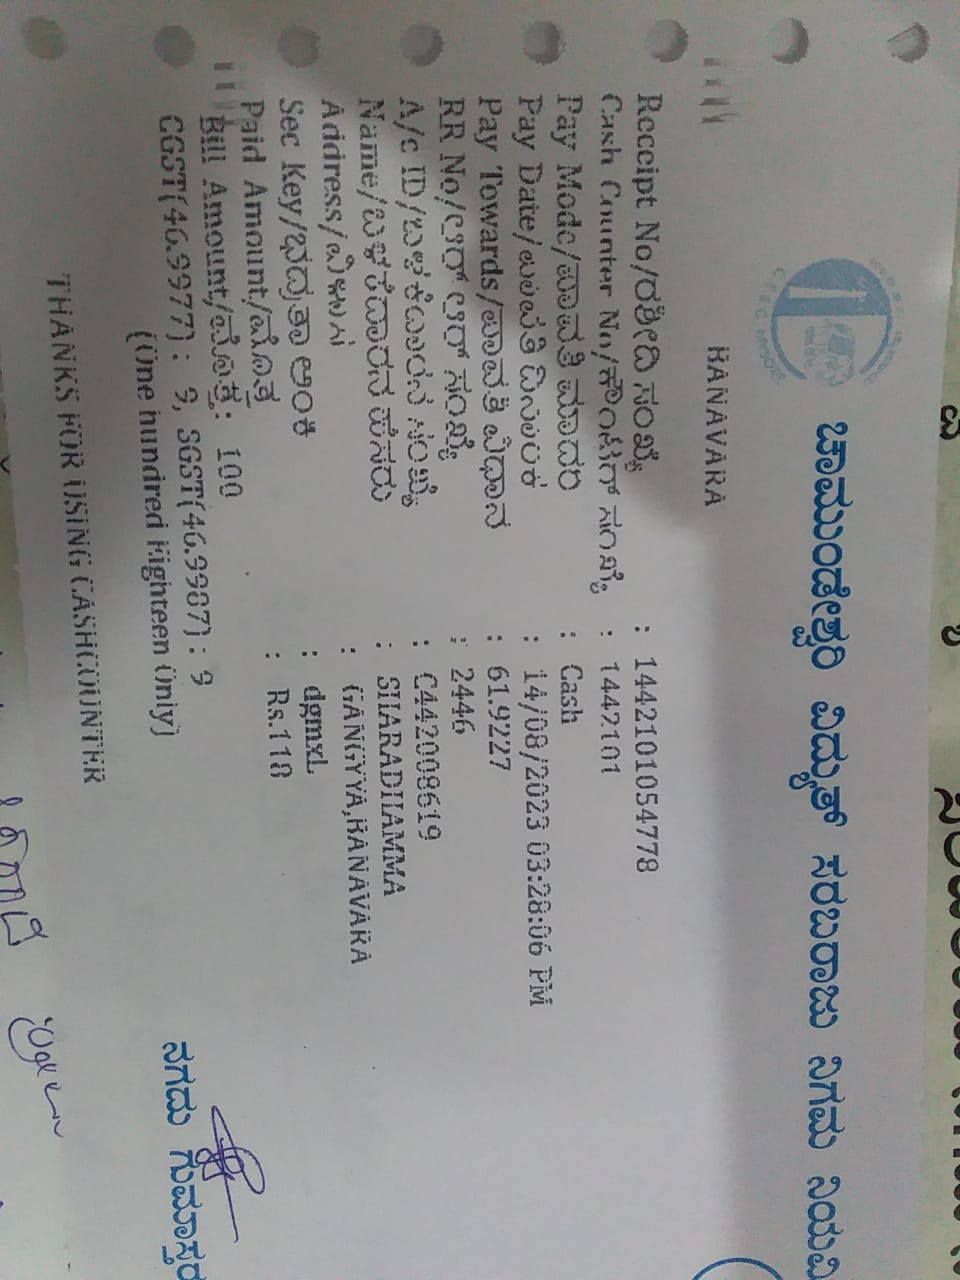 ಚಾಮುಂಡೇಶ್ವರಿ ವಿದ್ಯುತ್ ಸರಬರಾಜು ನಿಗಮ ನಿಯಮಿ
BANAVARA
Receipt No/ರಶೀದಿ ಸಂಖ್ಯೆ : 1442101054778
Cash Counter No/ಕೌಂಟರ್ ಸಂಖ್ಯೆ : 1442101
Pay Mode/ಪಾವತಿ ಮಾದರಿ : Cash
Pay Date/ಪಾವತಿ ದಿನಾಂಕ : 14/08/2023 03:28:06 PM
Pay Towards/ಪಾವತಿ ವಿಧಾನ : 61.9227
RR No/ಆರ್ ಆರ್ ಸಂಖ್ಯೆ : 2446
A/c ID/ಬಳಕೆದಾರನ ಸಂಖ್ಯೆ : C442008619
Name/ಬಳಕೆದಾರನ ಹೆಸರು : SHARADHAMMA
Address/ವಿಳಾಸ : GANGYYA,BANAVARA
Sec Key/ಭದ್ರತಾ ಅಂಕಿ : dgmxL
Paid Amount/ಮೊತ್ತ : Rs.118
Bill Amount/ಮೊತ್ತ: 100
CGST(46.9977) : 9, SGST(46.9987) : 9
(One hundred Eighteen Only)
THANKS FOR USING CASHCOUNTER
ನಗದು ಗುಮಾಸ್ತರ